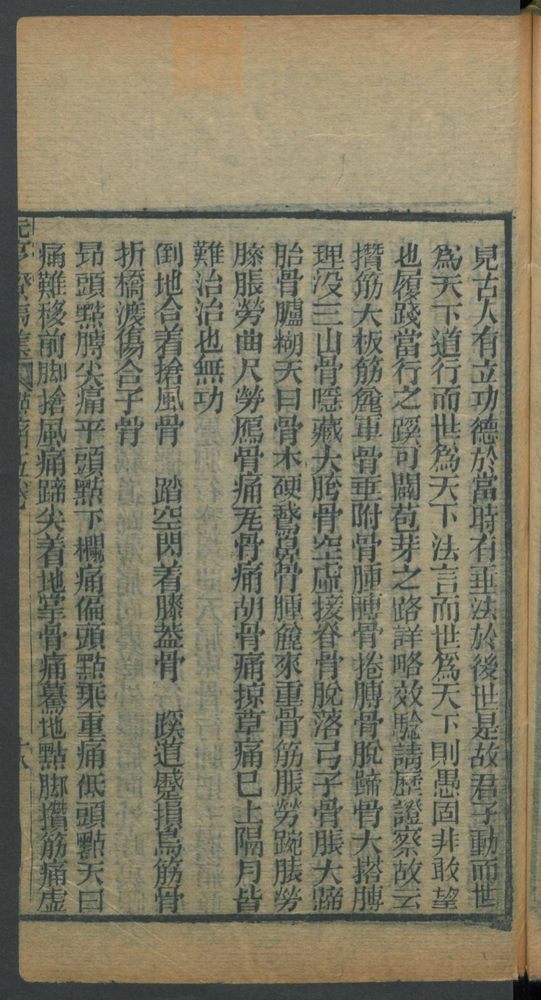 見古人有立功德於當時有垂法於後世是故君子動而世
為天下道行而世為天下法言而世為天下則愚固非敢望
也履踐當行之蹊可闢苞芽之路詳略效驗請歷證察故云
攢筋大板筋軍骨垂附骨腫轉骨捲膊骨脫蹄骨大搭膊
埋没三山骨噁藏大胯骨空虛接脊骨脫落弓子骨脹大蹄
胎骨臚糊天臼骨木硬骨腫來重骨筋脹勞踠勞
膝脹勞曲尺勞鴈骨痛尾骨痛胡骨痛掠草痛已上隔月皆
難治治也無功
倒地合着搶風骨　踏空閃着膝蓋骨　蹊道蹙損烏筋骨
折橋渡傷合子骨
昻頭點膊尖痛平頭點下欄痛偏頭點乘重痛低頭點天臼
痛難移前脚搶風痛蹄尖着地掌骨痛驀地點脚攢筋痛虚